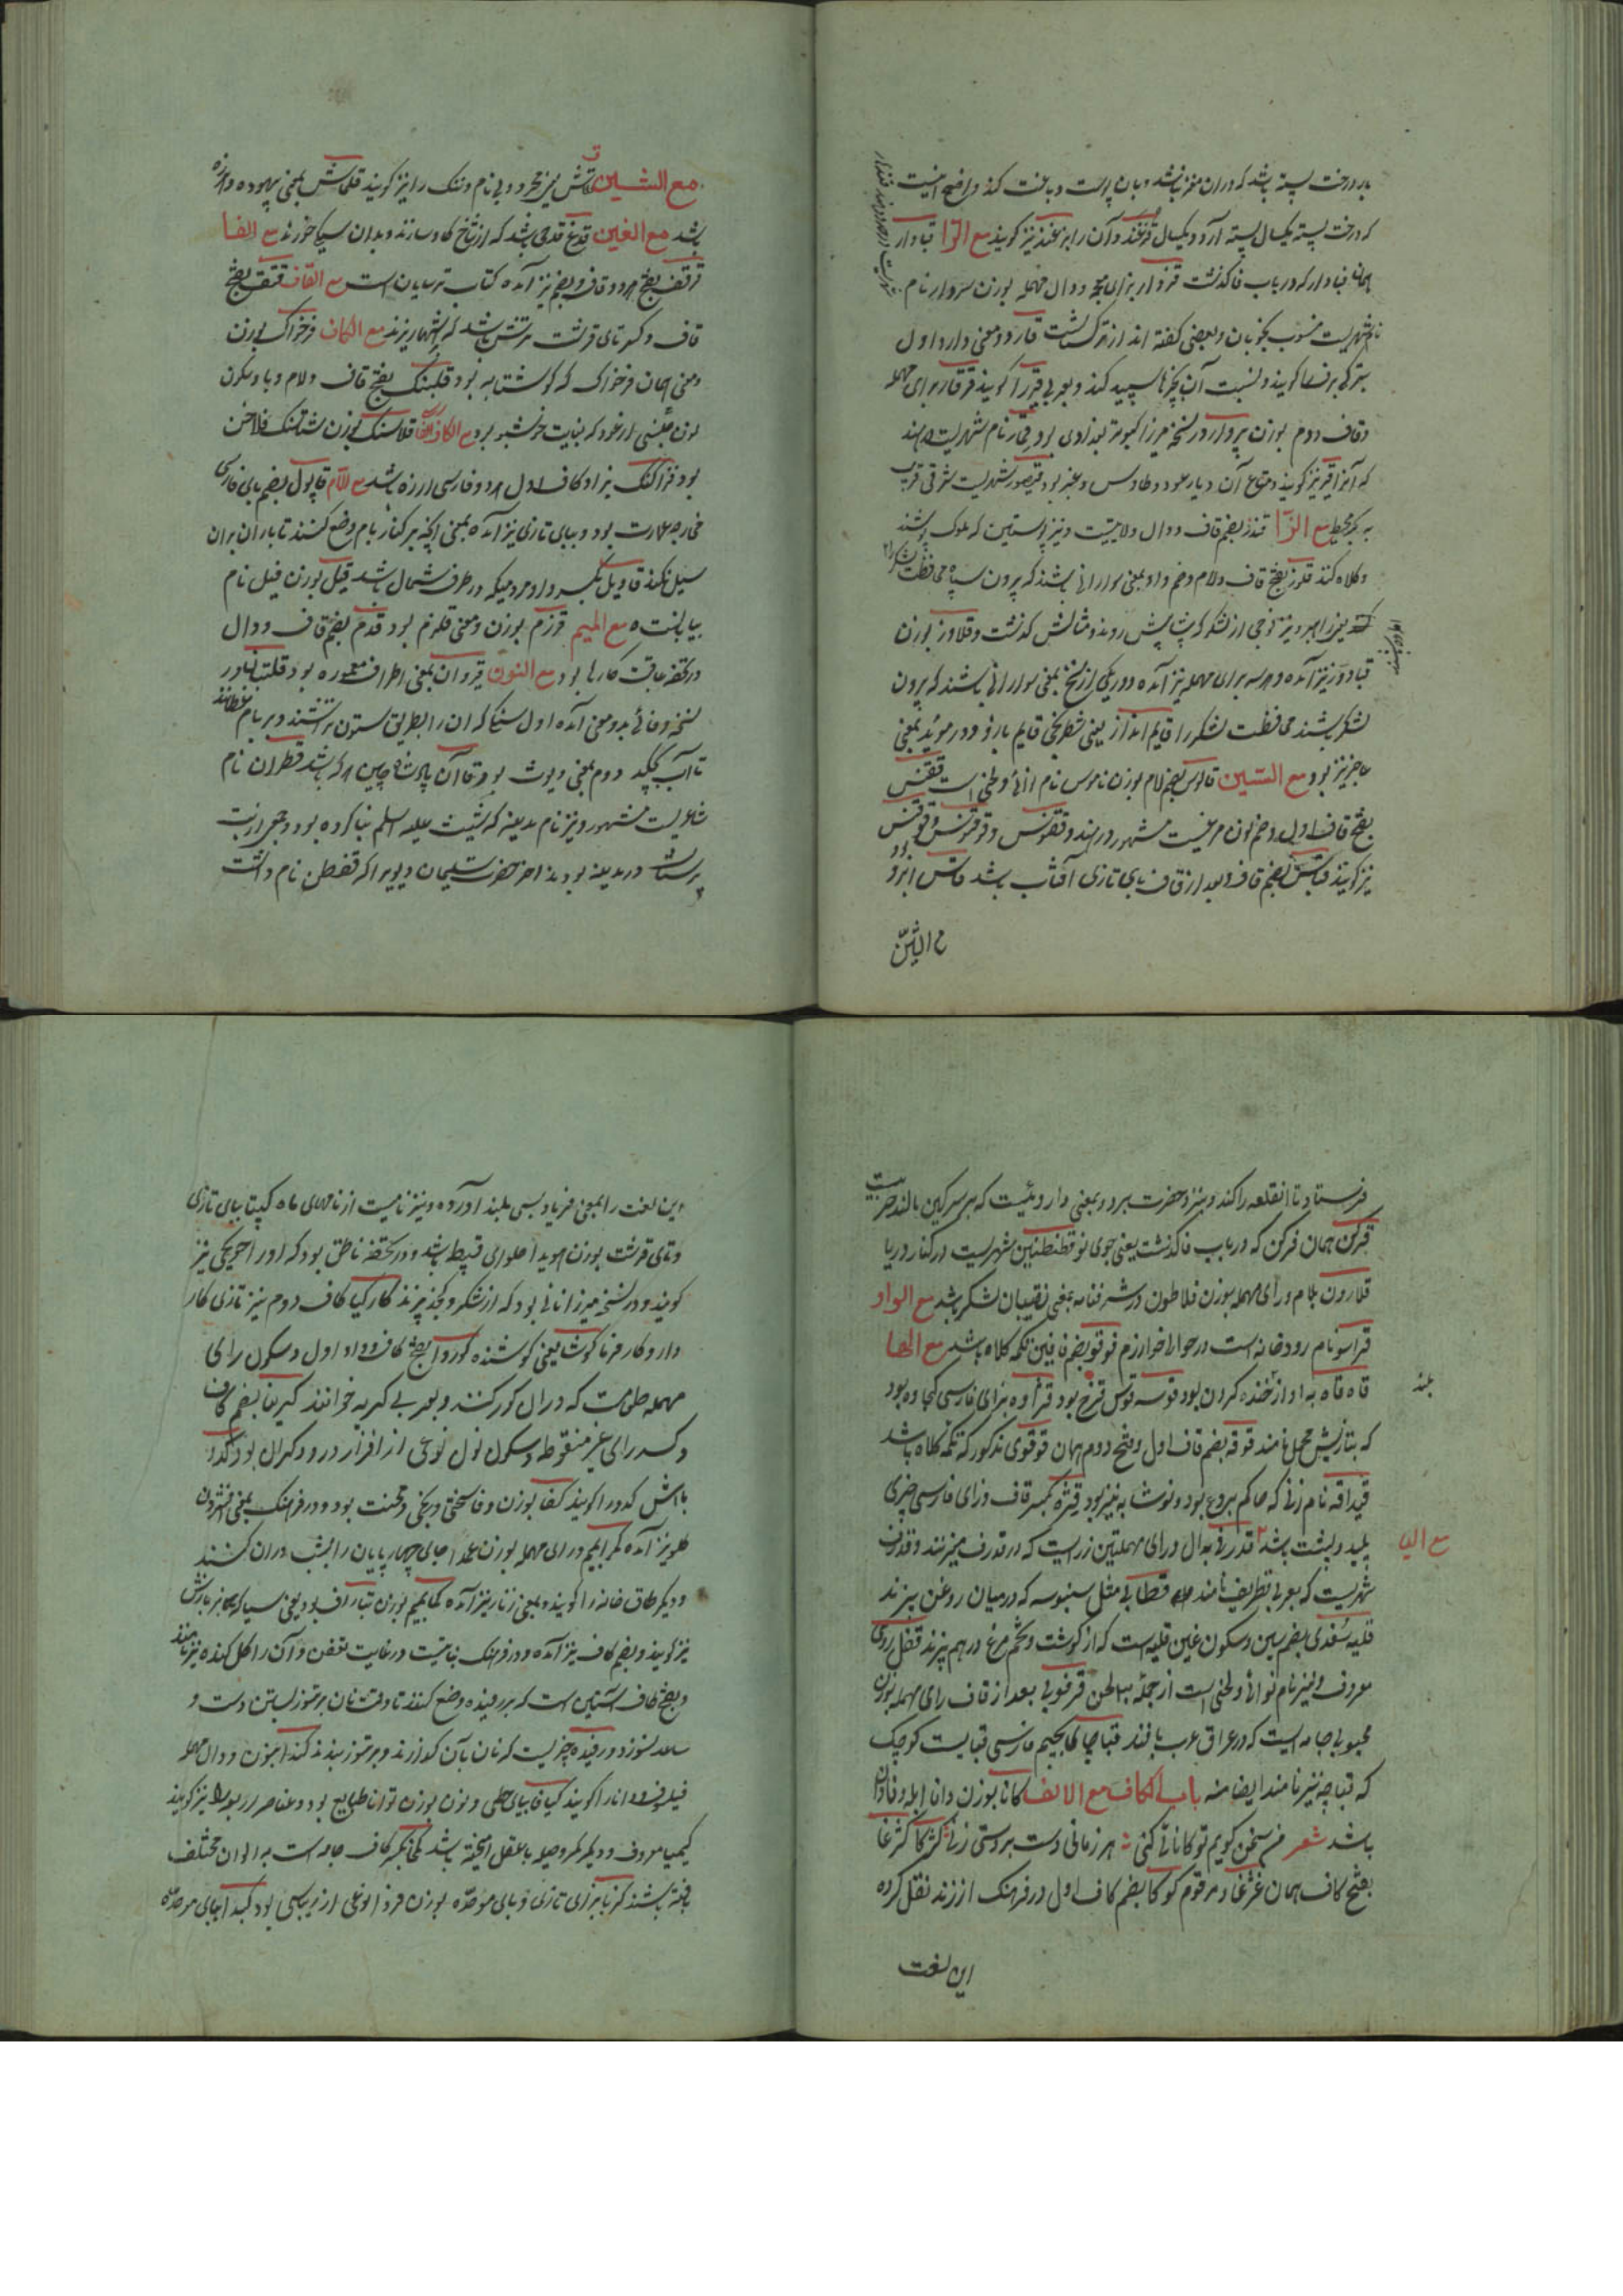 بار درخت پسته باشد که در آن مغز نباشد و بان پوست دباغت کنند و اضح اینست
که درخت پسته یکسال پسته آرد و یکسال قزغند و آن را بزغند نیز گویند مع الرا قبادار
همان فبادار که در باب فا گذشت قزدار بزای معجمه و دال مهمله بوزن سردار نام
نام شهریست منسوب بخوبان و بعضی گفته اند از ترکستانست قار دو معنی دارد اول
بترکی برف را گویند و نسبت آن بچیزها سپید کنند و بعربی قیر را گویند قرقار برای مهمله
و قاف دوم بوزن پروار در نسخه میرزا کبوتر بغدادی بود قمار نام شهریست در هند
که آنرا قمر نیز گویند و متاع آن دیار عود و طاوس و عنبر بود قیصور شهریست شرقی قریب
به بحر محیط مع الزا قندز بضم قاف و دال ولایتیست و نیز پوستین که ملوک پوشند
و کلاه کنند قلوز بفتح قاف و لام و ضم واو بمعنی سوارانی باشند که بیرون سپاه محافظت لشکر را
نیز راهبر و نیز فوجی از لشکر که پیشاپیش روند و مثالش گذشت و قلاوز بوزن
قبادوز نیز آمده و هر سه برای مهمله نیز آمده و در یکی از نسخ بمعنی سوارانی باشند که بیرون
لشکر باشند محافظت لشکر را قایم انداز یعنی شطرنجی قایم باز و در موید بمعنی
عاجز نیز بود مع السین قالوس بضم لام بوزن ناموس نام نوائی و لحنی است ققنس
بفتح قاف اول و ضم نون مرغیست مشهور در هند و ققنوس و قوقنوس و قوقنس
نیز گویند قباس بضم قاف و بعد از قاف بای تازی آفتاب باشد قاش ابرو بود
مع الشین
مع الشین قلاش بی چیز مجرد و بی نام و ننگ را نیز گویند قلماش بمعنی بیهوده و هرزه
باشد مع الغین قدغ قدحی باشد که از شاخ گاو سازند و بدان سیکی خورند مع الفا
قرقف بفتح هر دو قاف و بضم نیز آمده کتاب ترسایان است مع القاف ققنق بفتح
قاف و کسر تای قرشت ترشی باشد که بآشها ریزند مع الکاف فرخواگ بوزن
و معنی همان فرخواگ که گوشتابه بود قلبنگ بفتح قاف و لام و با و سکون
نون جنسی از عود که بغایت خوشبو بود مع الکاف قلاسنگ بوزن شتالنگ فلاخن
بود قزاکنک بزا و کاف اول هر دو فارسی لرزه باشد مع اللام قاپول بضم بای فارسی
مخارجه عمارت بود و ببای تازی نیز آمده بمعنی آنچه بر کنار بام وضع کنند تا باران بر آن
سیل نکند قاویل بکسر واو مردمیکه در طرف شمال باشند قیل بوزن فیل نام
بیابانست مع المیم قرزم بوزن و معنی قلزم بود قدم بفتح قاف و دال
در تحفه عاقبت کارها بود مع النون قیروان بمعنی اطراف معموره بود قلتبان در
نسخه وفائی بدو معنی آمده اول سنگی که آن را بطریق ستون تراشند و بر بام غلطانند
تا آب نچکد دوم بمعنی دیوث بود قاآن پادشاه چین هر که باشد قطران نام
شاعریست مشهور و نیز نام مدینه که شیث علیه السلم بنا کرده بود و جمعی از بت
پرستان در مدینه بودند آخر حضرت سلیمان دیویرا که قفطن نام داشت
فرستاد تا آن قلعه را کند و نیز حضرت برد و بمعنی دارویئیست که بر سرگین بالند جربیست
قرکن همان فرکن که در باب فا گذشت یعنی جوی نو قطنطنین شهریست در کنار دریا
قلارون بلام و رای مهمله بوزن فلاطون در شرفنامه بمعنی نقیبان لشکر باشد مع الواو
قراسو نام رودخانه است در حوالی خوارزم قوقو بضم قافین تکمه کلاه باشد مع الها
قاه قاه به آواز خنده کردن بود قوسه قوس قزح بود قژاوه بزای فارسی کجاوه بود بلند
که بتازیش محمل نامند قوقه بضم قاف اول و فتح دوم همان قوقوی مذکور که تکمه کلاه باشد
قیدافه نام زنی که حاکم بردع بود و نوشابه نیز بود قیژه بکسر قاف و زای فارسی چیزی
پلید و پشت باشد مع الیا قدرفی بدال و رای مهملتین زریست که در قدرف میزنند و قدرف
شهریست که بعربی قطریف نامند قطابی مثل سنبوسه که در میان روغن پزند
قلیه سغدی بضم سین و سکون غین قلیه است که از گوشت و تخم مرغ در هم پزند قفل رومی
معروف و نیز نام نوائی و لحنی است از جمله سی لحن قرقوبی بعد از قاف رای مهمله بوزن
محبوبی جامه ایست که در عراق عرب بافند قباچا بجیم فارسی قبایست کوچک
که قباچه نیز نامند ایضا منه باب الکاف مع الالف کانا بوزن دانا ابله و نادان
باشد شعر من سخن گویم تو کانائی کنی ؞ هر زمانی دست بر دستی زنی کژکا کژغا
بفتح کاف همان غژغا و مرقوم کوکا بضم کاف اول در فرهنگ از زند نقل کرده
این لغت
و این لغت را بمعنی فریاد بس بلند آورده و نیز نامیست از نامهای ماه کبیتا ببای تازی
و تای قرشت بوزن هویدا حلوای قبیط باشد و در تحفه ناطق بود که او را جوزکی نیز
گویند و در نسخه میرزا نانی بود که از شکر و کنجد پزند کارکیا کاف دوم نیز تازی کار
دار و کارفرما گوشا یعنی گوشنده کوروا بفتح کاف و واو اول و سکون رای
مهمله طعامیست که در آن کور کنند و بعربی کبریه خوانند کیرنا بضم کاف
و کسر رای غیر منقوطه و سکون نون نوعی از افزار درودگران بود کدوا
باآش کدو را گویند کفا بوزن وفا سختی و رنجی و محنت بود و در فرهنگ بمعنی افشردن
گلو نیز آمده کمرا بمیم و رای مهمله بوزن عمدا جای چهارپایان را بشب در آن کنند
و دیگر طاق خانه را گویند و بمعنی زنار نیز آمده
نیز گویند و بضم کاف نیز آمده و در فرهنگ نباتیست در غایت تعفن و آن را گل گنده نیز نامند
و بفتح کاف آستین است که بر رفیده وضع کنند تا وقت نان بر تنور بستن دست و
ساعد نسوزد و رفیده چیزیست که نان بآن گذارند و بر تنور بندند کندا بنون و دال مهمله
فیلسوف و دانا را گویند کیانا بیای حطی و نون بوزن توانا طبایع بود و عناصر اربعه را نیز گویند
کیمیا معروف و دیگر مکر و حیله با عقل آمیخته باشد کمخا بکسر کاف جامه است به الوان مختلف
بافته باشند کزبا بزای تازی و بای موحده بوزن فردا نوعی از ریباسی بود کبدا ببای موحده